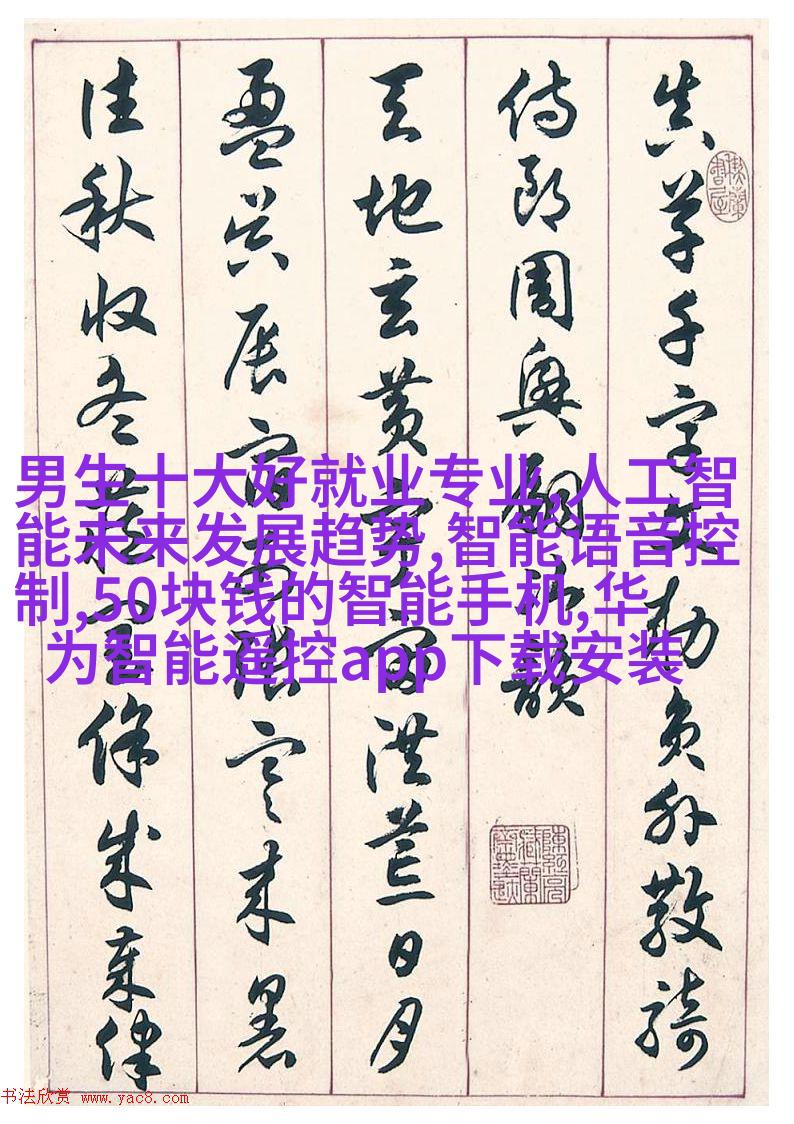 真草千字文勅員外散騎
侍郎周興嗣次韻
天地玄黃宇宙洪荒日月
盈昃辰宿列張寒来暑
往秋收冬藏閏餘成歲律
男生十大好就业专业,人工智
能未来发展趋势,智能语音控
制,50块钱的智能手机,华
为智能遥控app下载安装
书法欣赏 www.yac8.com